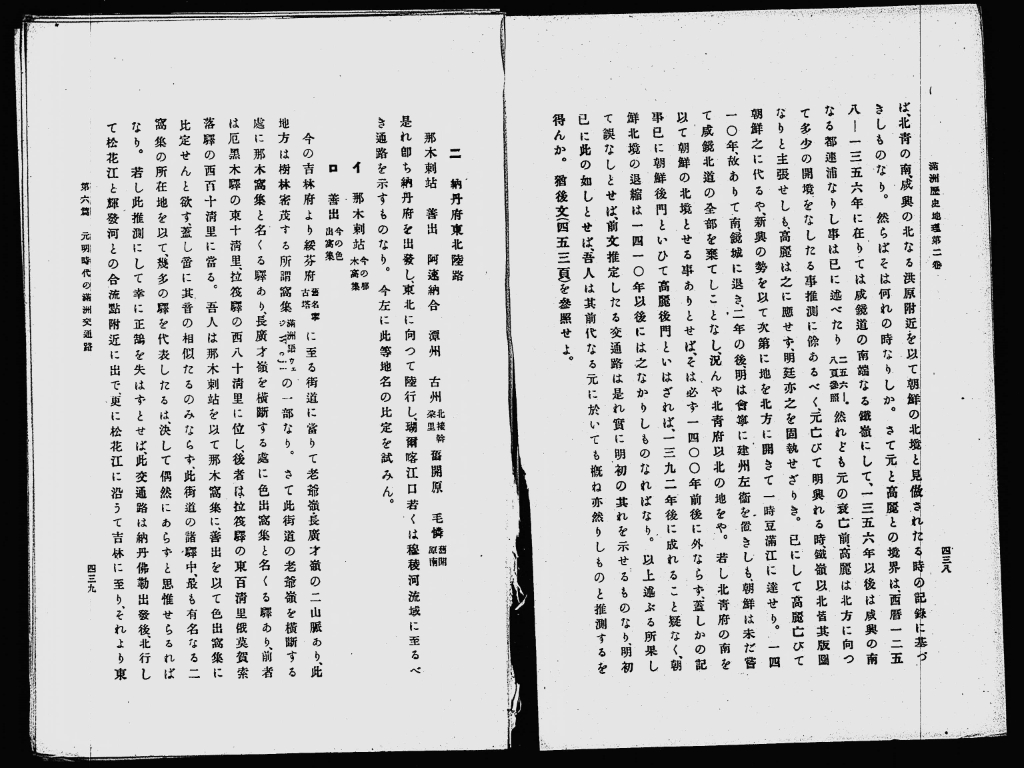 滿洲歷史地理第二卷
四三八
ば、北靑の南、咸興の北なる洪原附近を以て朝鮮の北境と見做されたる時の記錄に基づ
きしものなり。然らばそは何れの時なりしか。さて元と高麗との境界は、西曆一二五
八―一三五六年に在りては咸鏡道の南端なる鐵嶺にして、一三五六年以後は咸興の南
なる都連浦なりし事は已に述べたり 二五六―八頁參照 。然れども元の衰亡前高麗は北方に向つ
て多少の開境をなしたる事推測に餘あるべく、元亡びて明興れる時鐵嶺以北皆其版圖
なりと主張せしも、高麗は之に應せず、明廷亦之を固執せざりき。已にして高麗亡びて
朝鮮之に代るや、新興の勢を以て次第に地を北方に開きて一時豆滿江に達せり。一四
一〇年故ありて南、鏡城に退き、二年の後、明は會寧に建州左衞を置きしも、朝鮮は未だ嘗
て咸鏡北道の全部を棄てしことなし、況んや北靑府以北の地をや。若し北靑府の南を
以て朝鮮の北境とせる事ありとせば、そは必ず一四〇〇年前後に外ならず、蓋しかの記
事已に朝鮮後門といひて高麗後門といはざれば、一三九二年後に成れること疑なく、朝
鮮北境の退縮は一四一〇年以後には之なかりしものなればなり。以上述ぶる所果し
て誤なしとせば、前文推定したる交通路は是れ實に明初の其れを示せるものなり、明初
已に此の如しとせば、吾人は其前代なる元に於いても槪ね亦然りしものと推測するを
得んか。猶後文(四五三頁)を參照せよ。
二 納丹府東北陸路
那木刺站 善出 阿速納合 潭州 古州 北接斡朶里 舊開原 毛憐 舊開原南
是れ卽ち納丹府を出發し東北に向つて陸行し、瑚爾喀江口若くは穆稜河流域に至るべ
き通路を示すものなり。今左に此等地名の比定を試みん。
イ 那木刺站 今の那木窩集
ロ 善出 今の色出窩集
今の吉林府より綏芬府 舊名寧古塔 に至る街道に當りて老爺嶺、長廣才嶺の二山脈あり、此
地方は樹林密茂する所謂窩集 滿洲語ウェジWeji の一部なり。さて此街道の老爺嶺を橫斷する
處に那木窩集と名くる驛あり、長廣才嶺を橫斷する處に色出窩集と名くる驛あり、前者
は厄黑木驛の東十淸里拉筏驛の西八十淸里に位し、後者は拉筏驛の東百淸里俄莫賀索
落驛の西百十淸里に當る。吾人は那木刺站を以て那木窩集に、善出を以て色出窩集に
比定せんと欲す、蓋し啻に其音の相似たるのみならず此街道の諸驛中、最も有名なる二
窩集の所在地を以て幾多の驛を代表したるは、決して偶然にあらずと思惟せらるれば
なり。若し此推測にして幸に正鵠を失はずとせば、此交通路は納丹佛勒出發後、北行し
て松花江と輝發河との合流點附近に出で、更に松花江に沿うて吉林に至り、それより東
第六篇 元明時代の滿洲交通路
四三九